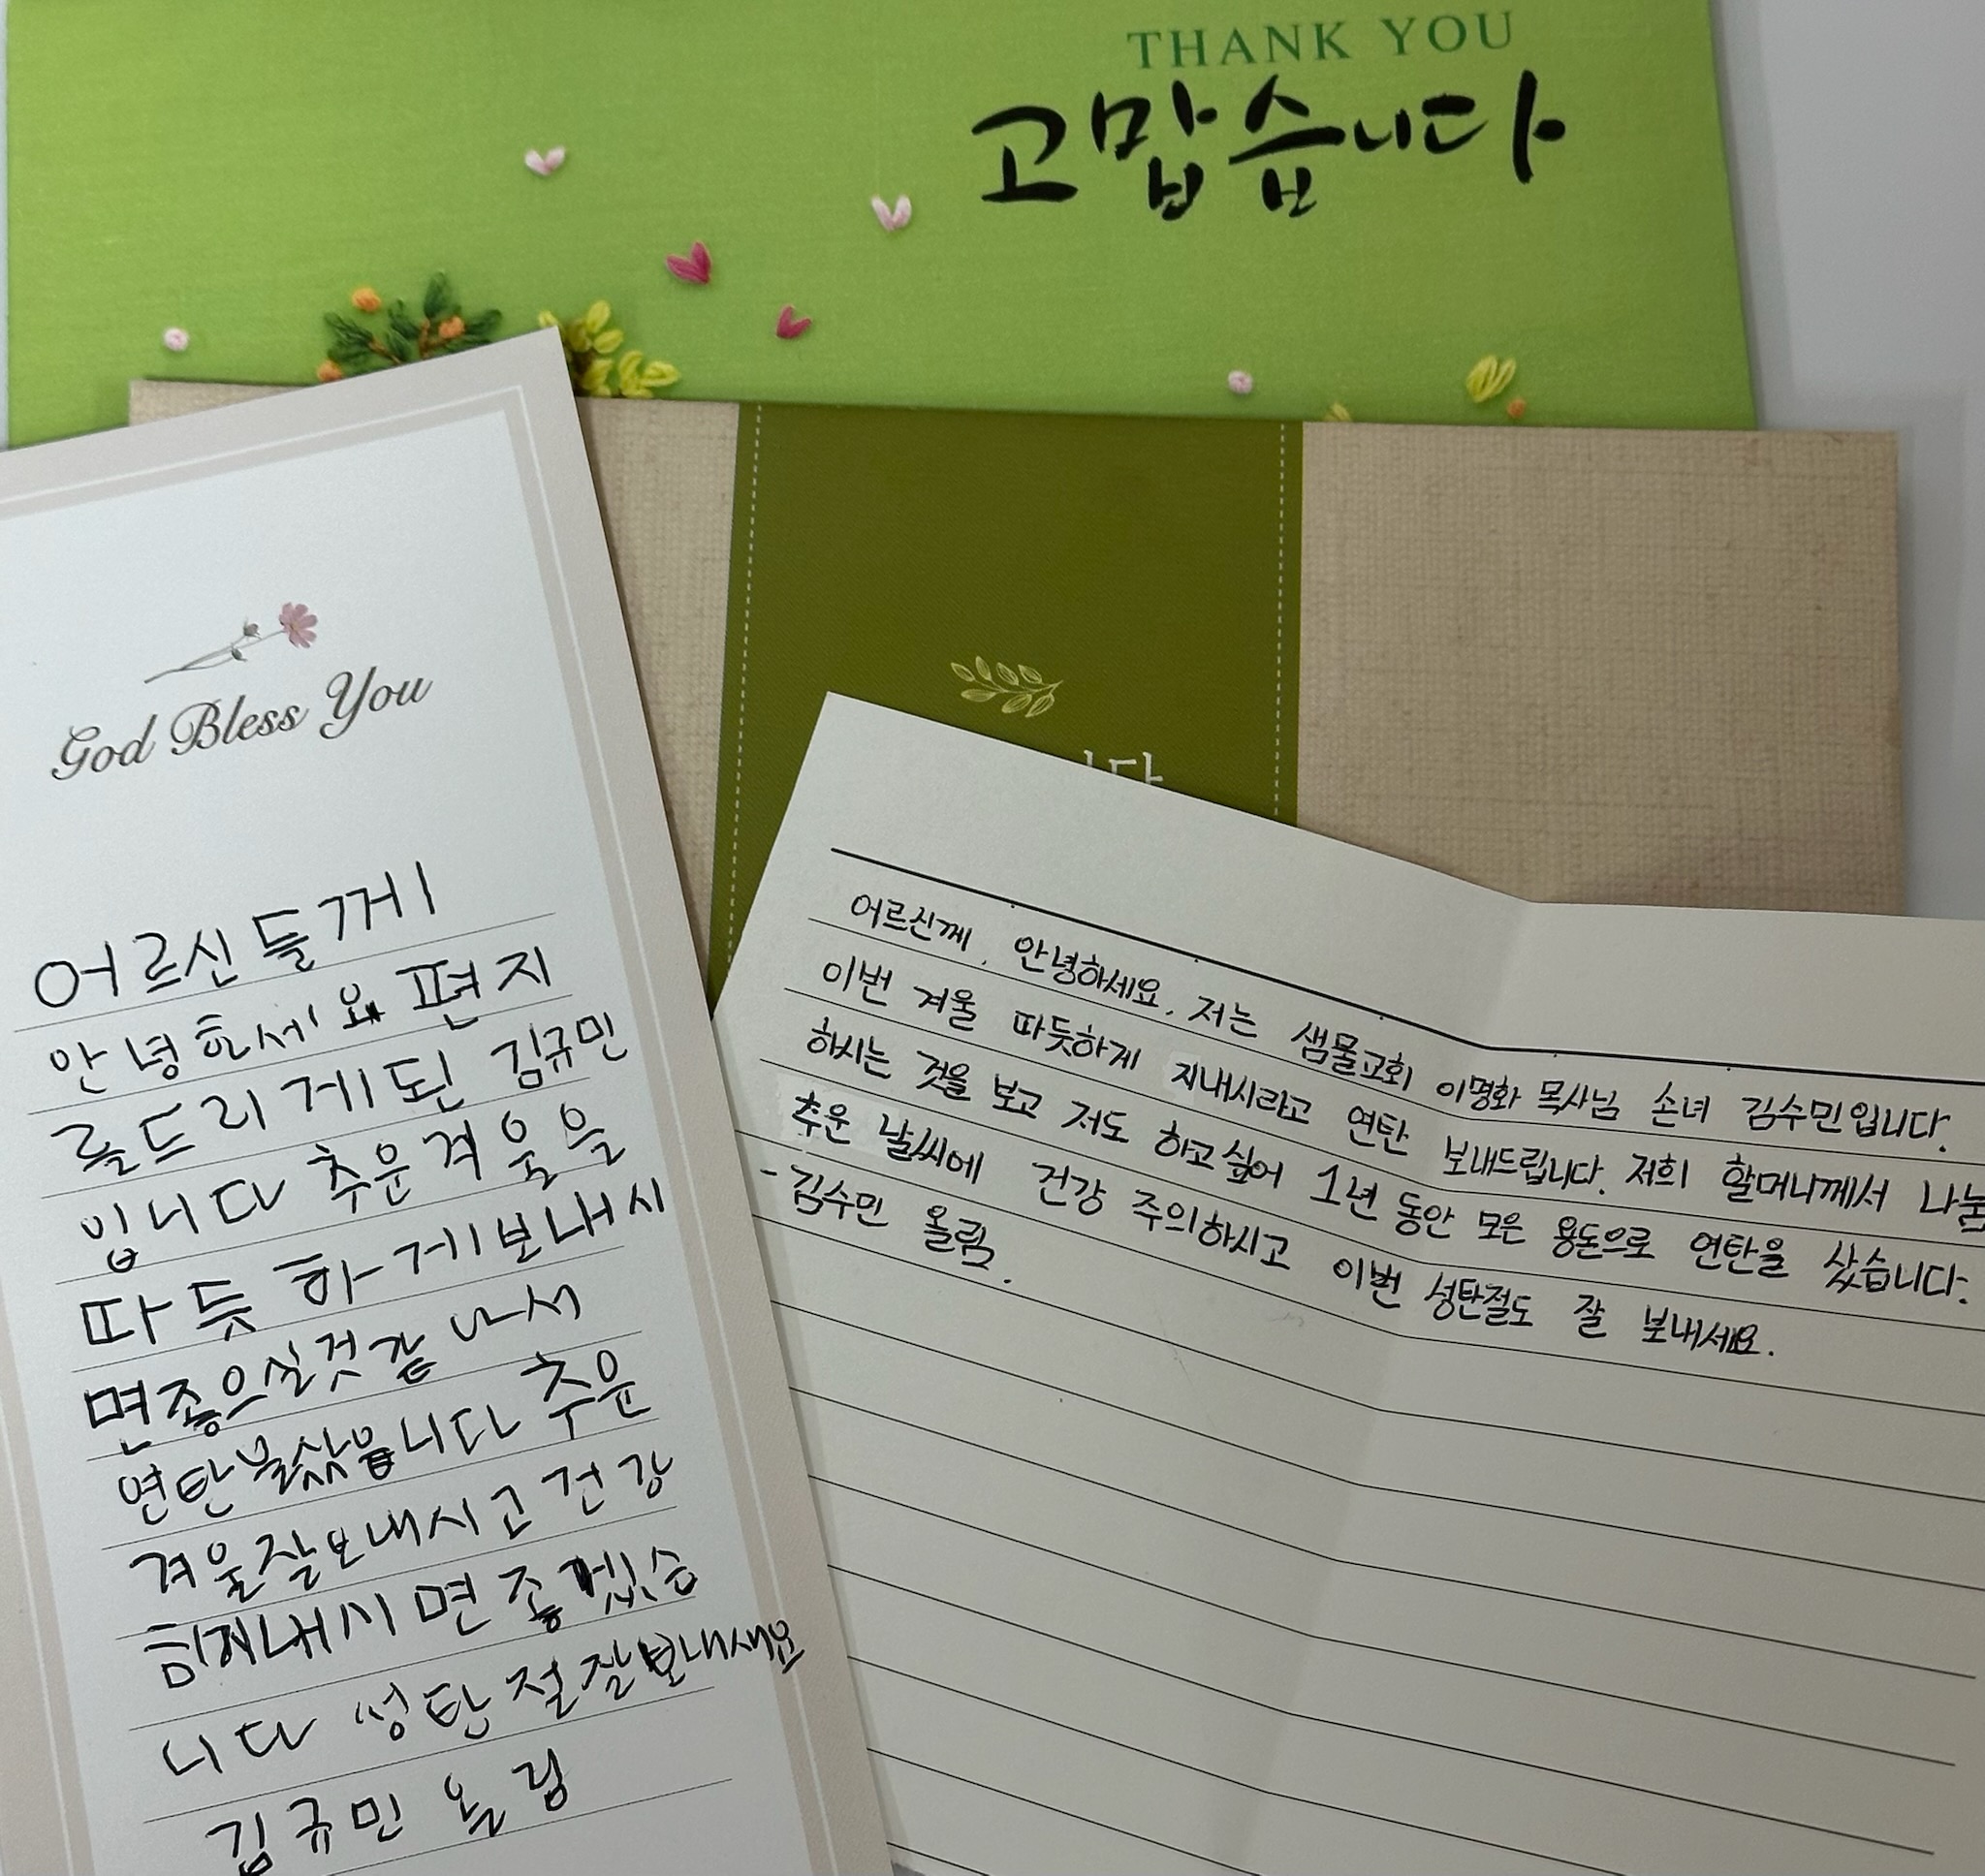 THANK YOU
고맙습니다
God Bless You
어르신들께
안녕하세요 편지
를드리게된 김규민
입니다 추운겨울을
따듯하게보내시
면좋으실것같아서
연탄불샀습니다 추운
겨울잘보내시고 건강
힘내시면 좋겠습
니다 성탄절잘보내세요
김규민 올림
어르신께, 안녕하세요, 저는 샘물교회 이명화 목사님 손녀 김수민입니다.
이번 겨울 따듯하게 지내시라고 연탄 보내드립니다. 저희 할머니께서 나눔
하시는 것을 보고 저도 하고싶어 1년 동안 모은 용돈으로 연탄을 샀습니다.
추운 날씨에 건강 주의하시고 이번 성탄절도 잘 보내세요.
-김수민 올림.